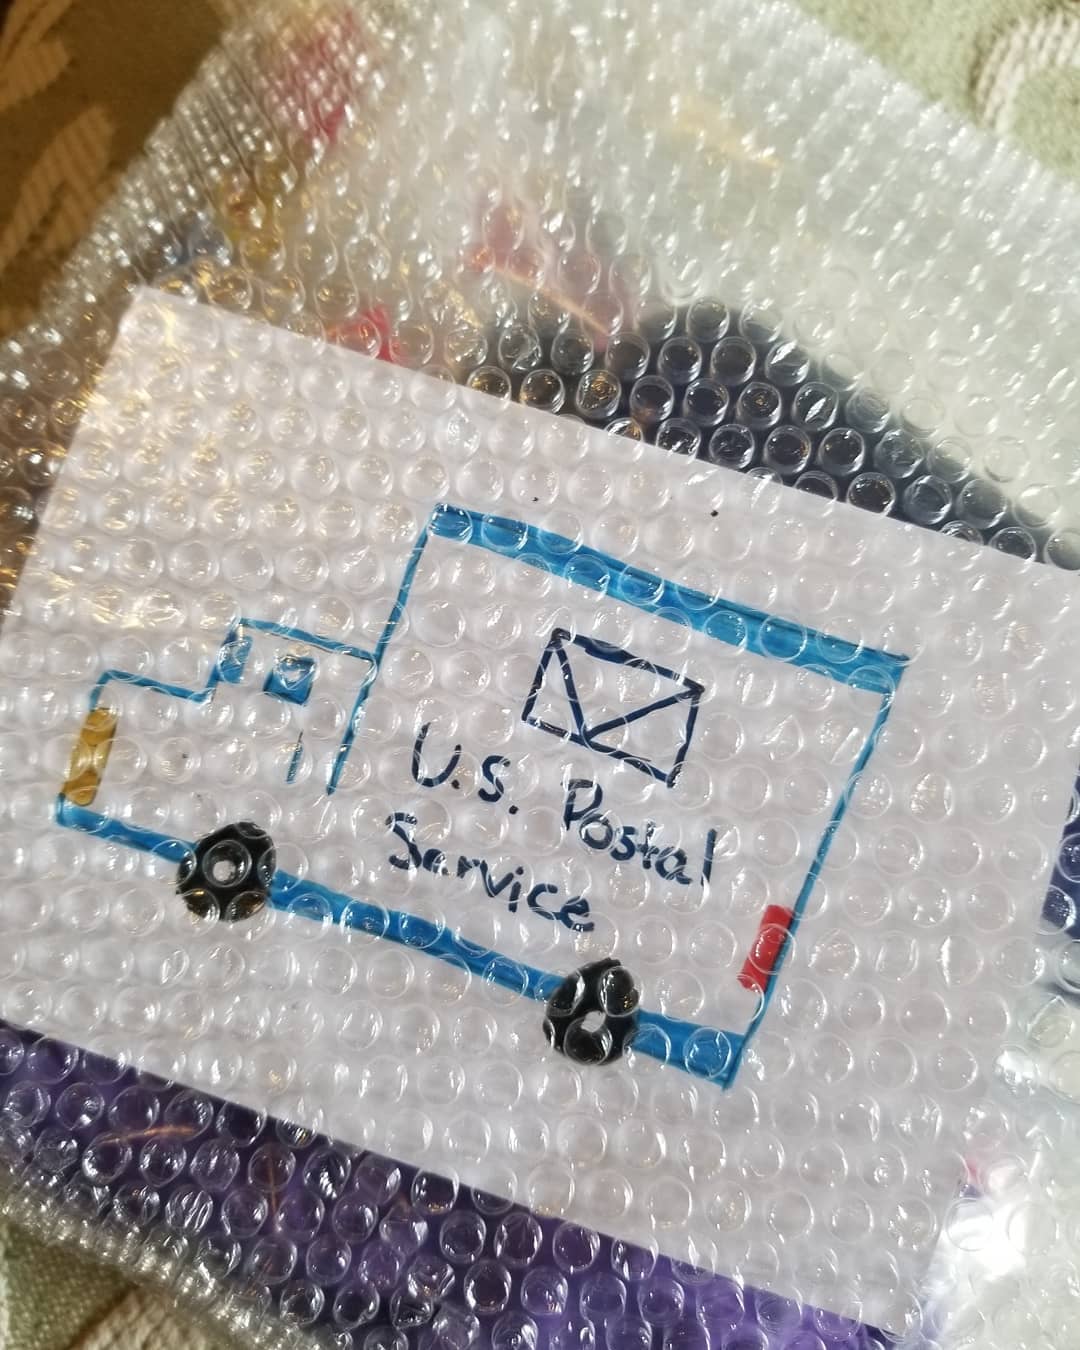 U.S. Postal
Service